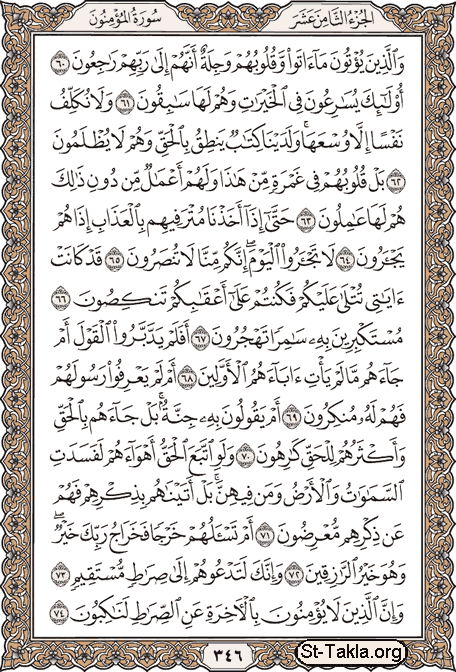 سُورَةُ المُؤْمِنُونَ
الجُزْءُ الثَّامِنَ عَشَرَ
وَالَّذِينَ يُؤْتُونَ مَا ءَاتَوا وَّقُلُوبُهُمْ وَجِلَةٌ أَنَّهُمْ إِلَىٰ رَبِّهِمْ رَاجِعُونَ ٦٠
أُو۟لَٰٓئِكَ يُسَارِعُونَ فِي الْخَيْرَاتِ وَهُمْ لَهَا سَابِقُونَ ٦١ وَلَا نُكَلِّفُ
نَفْسًا إِلَّا وُسْعَهَا وَلَدَيْنَا كِتَابٌ يَنطِقُ بِالْحَقِّ وَهُمْ لَا يُظْلَمُونَ
٦٢ بَلْ قُلُوبُهُمْ فِي غَمْرَةٍ مِّنْ هَٰذَا وَلَهُمْ أَعْمَالٌ مِّن دُونِ ذَٰلِكَ
هُمْ لَهَا عَامِلُونَ ٦٣ حَتَّىٰ إِذَا أَخَذْنَا مُتْرَفِيهِم بِالْعَذَابِ إِذَا هُمْ
يَجْـَٔرُونَ ٦٤ لَا تَجْـَٔرُوا الْيَوْمَ إِنَّكُم مِّنَّا لَا تُنصَرُونَ ٦٥ قَدْ كَانَتْ
ءَايَٰتِي تُتْلَىٰ عَلَيْكُمْ فَكُنتُمْ عَلَىٰٓ أَعْقَٰبِكُمْ تَنكِصُونَ ٦٦
مُسْتَكْبِرِينَ بِهِۦ سَٰمِرًا تَهْجُرُونَ ٦٧ أَفَلَمْ يَدَّبَّرُوا الْقَوْلَ أَمْ
جَآءَهُم مَّا لَمْ يَأْتِ ءَابَآءَهُمُ الْأَوَّلِينَ ٦٨ أَمْ لَمْ يَعْرِفُوا رَسُولَهُمْ
فَهُمْ لَهُۥ مُنكِرُونَ ٦٩ أَمْ يَقُولُونَ بِهِۦ جِنَّةٌۢ بَلْ جَآءَهُم بِالْحَقِّ
وَأَكْثَرُهُمْ لِلْحَقِّ كَٰرِهُونَ ٧٠ وَلَوِ اتَّبَعَ الْحَقُّ أَهْوَآءَهُمْ لَفَسَدَتِ
السَّمَٰوَٰتُ وَالْأَرْضُ وَمَن فِيهِنَّ بَلْ أَتَيْنَٰهُم بِذِكْرِهِمْ فَهُمْ
عَن ذِكْرِهِم مُّعْرِضُونَ ٧١ أَمْ تَسْـَٔلُهُمْ خَرْجًا فَخَرَاجُ رَبِّكَ خَيْرٌ
وَهُوَ خَيْرُ الرَّٰزِقِينَ ٧٢ وَإِنَّكَ لَتَدْعُوهُمْ إِلَىٰ صِرَٰطٍ مُّسْتَقِيمٍ ٧٣
وَإِنَّ الَّذِينَ لَا يُؤْمِنُونَ بِالْءَاخِرَةِ عَنِ الصِّرَٰطِ لَنَٰكِبُونَ ٧٤
٣٤٦
St-Takla.org